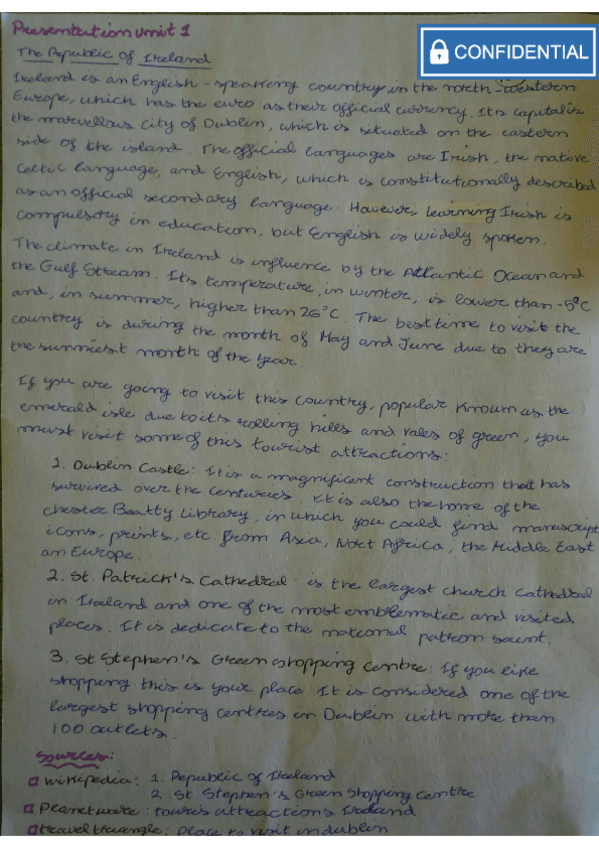 Presentation unit 1
CONFIDENTIAL
The Republic of Ireland
Ireland is an English-speaking country in the north-western
Europe, which has the euro as their official currency. Its capital is
the marvellous city of Dublin, which is situated on the eastern
side of the island. The official languages are Irish, the native
Celtic language, and English, which is constitutionally described
as an official secondary language. However, learning Irish is
compulsory in education, but English is widely spoken.
The climate in Ireland is influence by the Atlantic Ocean and
the Gulf Stream. Its temperature, in winter, is lower than -5°C
and, in summer, higher than 26°C. The best time to visit the
country is during the month of May and June due to they are
the sunniest month of the year.
If you are going to visit this country, popular known as the
emerald isle due to its rolling hills and vales of green, you
must visit some of this tourist attractions:
1. Dublin Castle: It is a magnificent construction that has
survived over the centuries. It is also the home of the
chester Beatty Library, in which you could find manuscript
icons, prints, etc from Asia, Nort Africa, the Middle East
an Europe.
2. St. Patrick's Cathedral: is the largest church Cathedral
in Ireland and one of the most emblematic and visited
places. It is dedicate to the national patron saint.
3. St Stephen's Green shopping centre: If you like
shopping this is your place. It is considered one of the
largest shopping centres in Dublin with more than
100 outlets.
Sources:
Wikipedia: 1. Republic of Ireland
2. St. Stephen's Green Shopping Centre
Planetware: touris attractions Ireland
traveltriangle: Place to visit in dublin